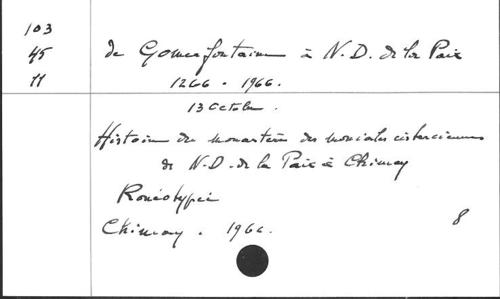 103
45
11
de Gomerfontaine à N.D. de la Paix
1266 - 1966.
13 Octobre.
Histoire du monastère des moniales cisterciennes
de N.D. de la Paix à Chimay
Ronéotypée
Chimay. 1966.
8